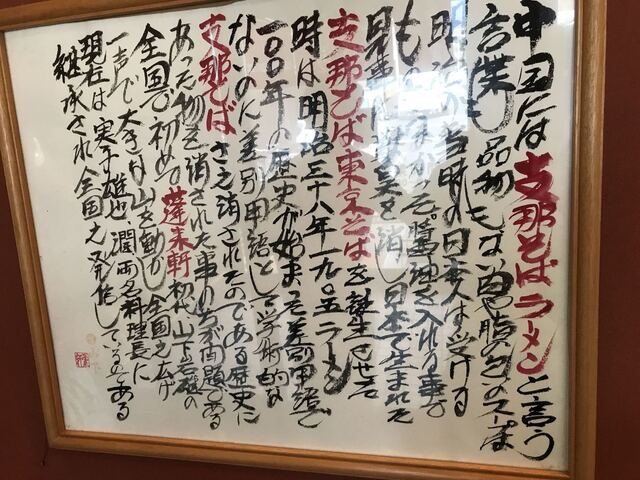 中国には支那そばラーメンと言う
言葉も品物もない白い脂のスープは
明治の当時の日本人は受ける
ものではなかった。醤油を入れる事で
見事に獣臭を消し日本で生まれた
支那そば東京そばを誕生させた
時は明治三十八年一九〇五ラーメン
一〇〇年の歴史が始まった差別用語で
ないのに差別用語として学術的な
支那そばさえ消されたのである歴史に
あった物を消された事の方が問題である
全国で初めて蓬来軒初代山下岩雄の
一声で大きな山を動かし全国に広げ
現在は実子雄也、潤両名料理長に
継承され全国に発信しているのである